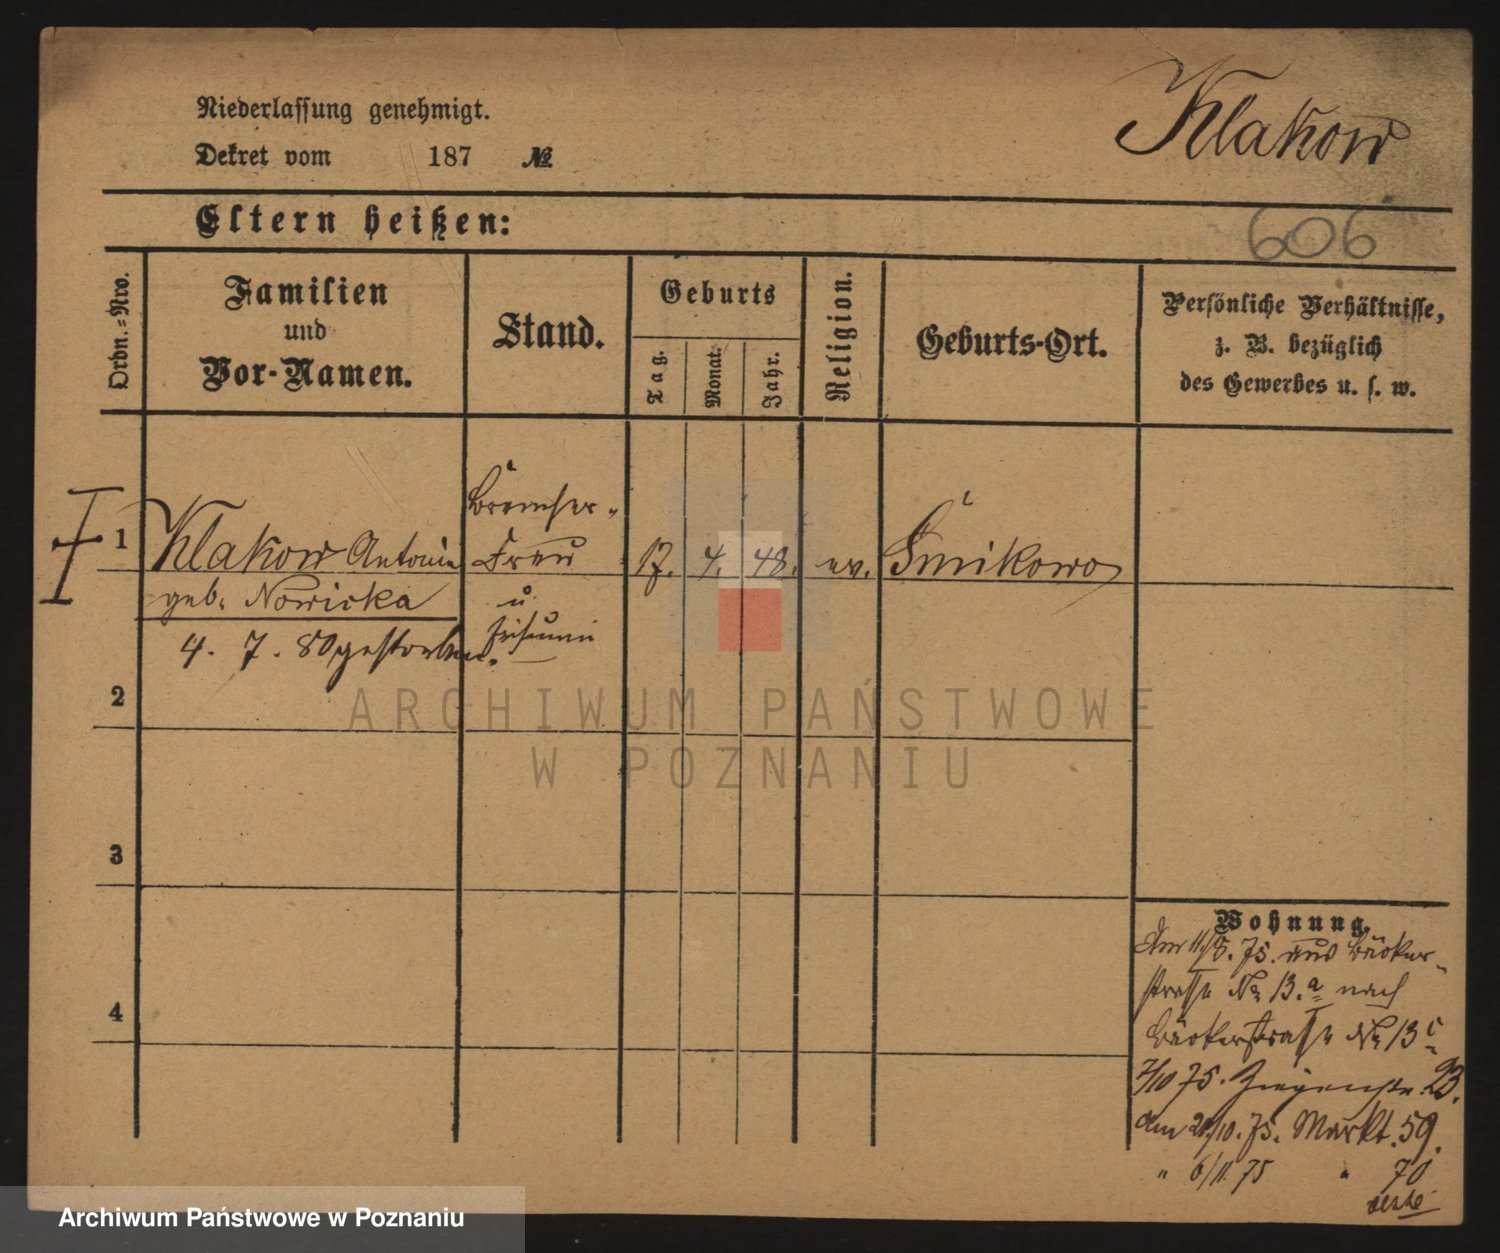 Niederlassung genehmigt.
Dekret vom 187 №
Klakow
Eltern heißen:
606
Ordn.=Nro.
Familien
und
Vor-Namen.
Stand.
Geburts
Tag.
Monat.
Jahr.
Religion.
Geburts-Ort.
Persönliche Verhältnisse,
z. B. bezüglich
des Gewerbes u. s. w.
1
Klakow Antonie
geb. Nowicka
4. 7. 80 gestorben.
Bremser-
Frau
u.
17. 4. 48. ev.
2
3
4
Wohnung.
Am 75. aus Bäcker-
strasse No 13.a nach
Bäckerstrasse No 13 c
7/10 75. Ziegenstr. 23.
Am /10. 75. Markt. 59.
" 6/11. 75 " 70
ARCHIWUM PAŃSTWOWE
W POZNANIU
Archiwum Państwowe w Poznaniu